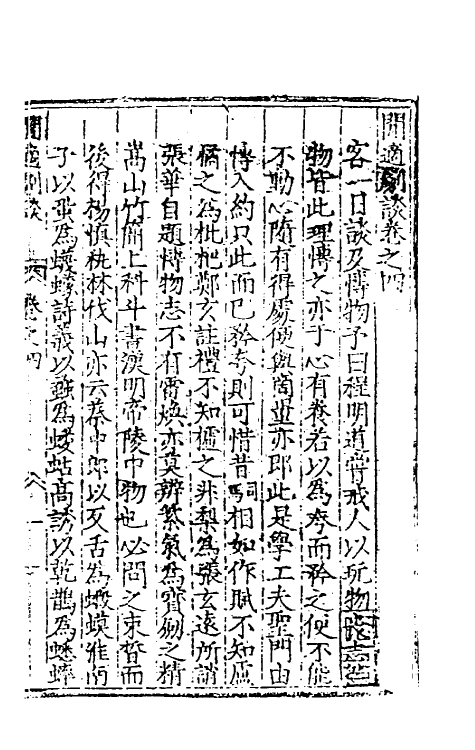 閒適劇談卷之四
客一日談及博物予曰程明道嘗戒人以玩物喪志盖
物皆此理博之亦于心有養若以為夸而矜之便不能
不動心隨有得處便與簡點亦即此是學工夫聖門由
博入約只此而已矜夸則可惜昔司馬相如作賦不知盧
橘之為枇杷鄭玄註禮不知樝之非梨為張玄遠所誚
張華自題博物志不有雷煥亦莫辨紫氣為寶劍之精
嵩山竹簡上科斗書漢明帝陵中物也必問之束晳而
後得楊慎秇林伐山亦云蔡中郎以反舌為蝦蟆淮南
子以蛩為蠛蠓詩義以蟊為螻蛄高誘以乾鵲為蟋蟀
閒適劇談 卷之四 一